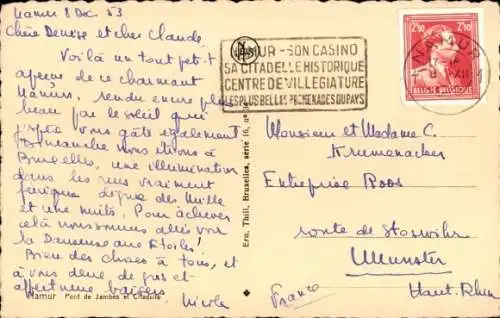 Namur 8 Dec 53
Chère Denise et cher Claude,
Voilà un tout petit
aperçu de ce charmant
Namur, rendu encore plus
beau par le soleil qui
j'espère vous gâte également
Dimanche nous irons à
Bruxelles, une illumination
dans les rues vraiment
féerique digne des Mille
et une nuits. Pour achever
cela nous sommes allés voir
la Danseuse aux Etoiles!
Bien des choses à tous, et
à vous deux de gros et
affectueux baisers
Nicole
Namur Pont de Jambes et Citadelle
Ern. Thill, Bruxelles, série 16, n°
NAMUR - SON CASINO
SA CITADELLE HISTORIQUE
CENTRE DE VILLEGIATURE
LES PLUS BELLES PROMENADES DU PAYS
2F10 2F10
BELGIE BELGIQUE
NAMUR
XII
Monsieur et Madame C.
Krumenacker
Entreprise Roos
route de Stosswihr
Munster
Haut-Rhin
France